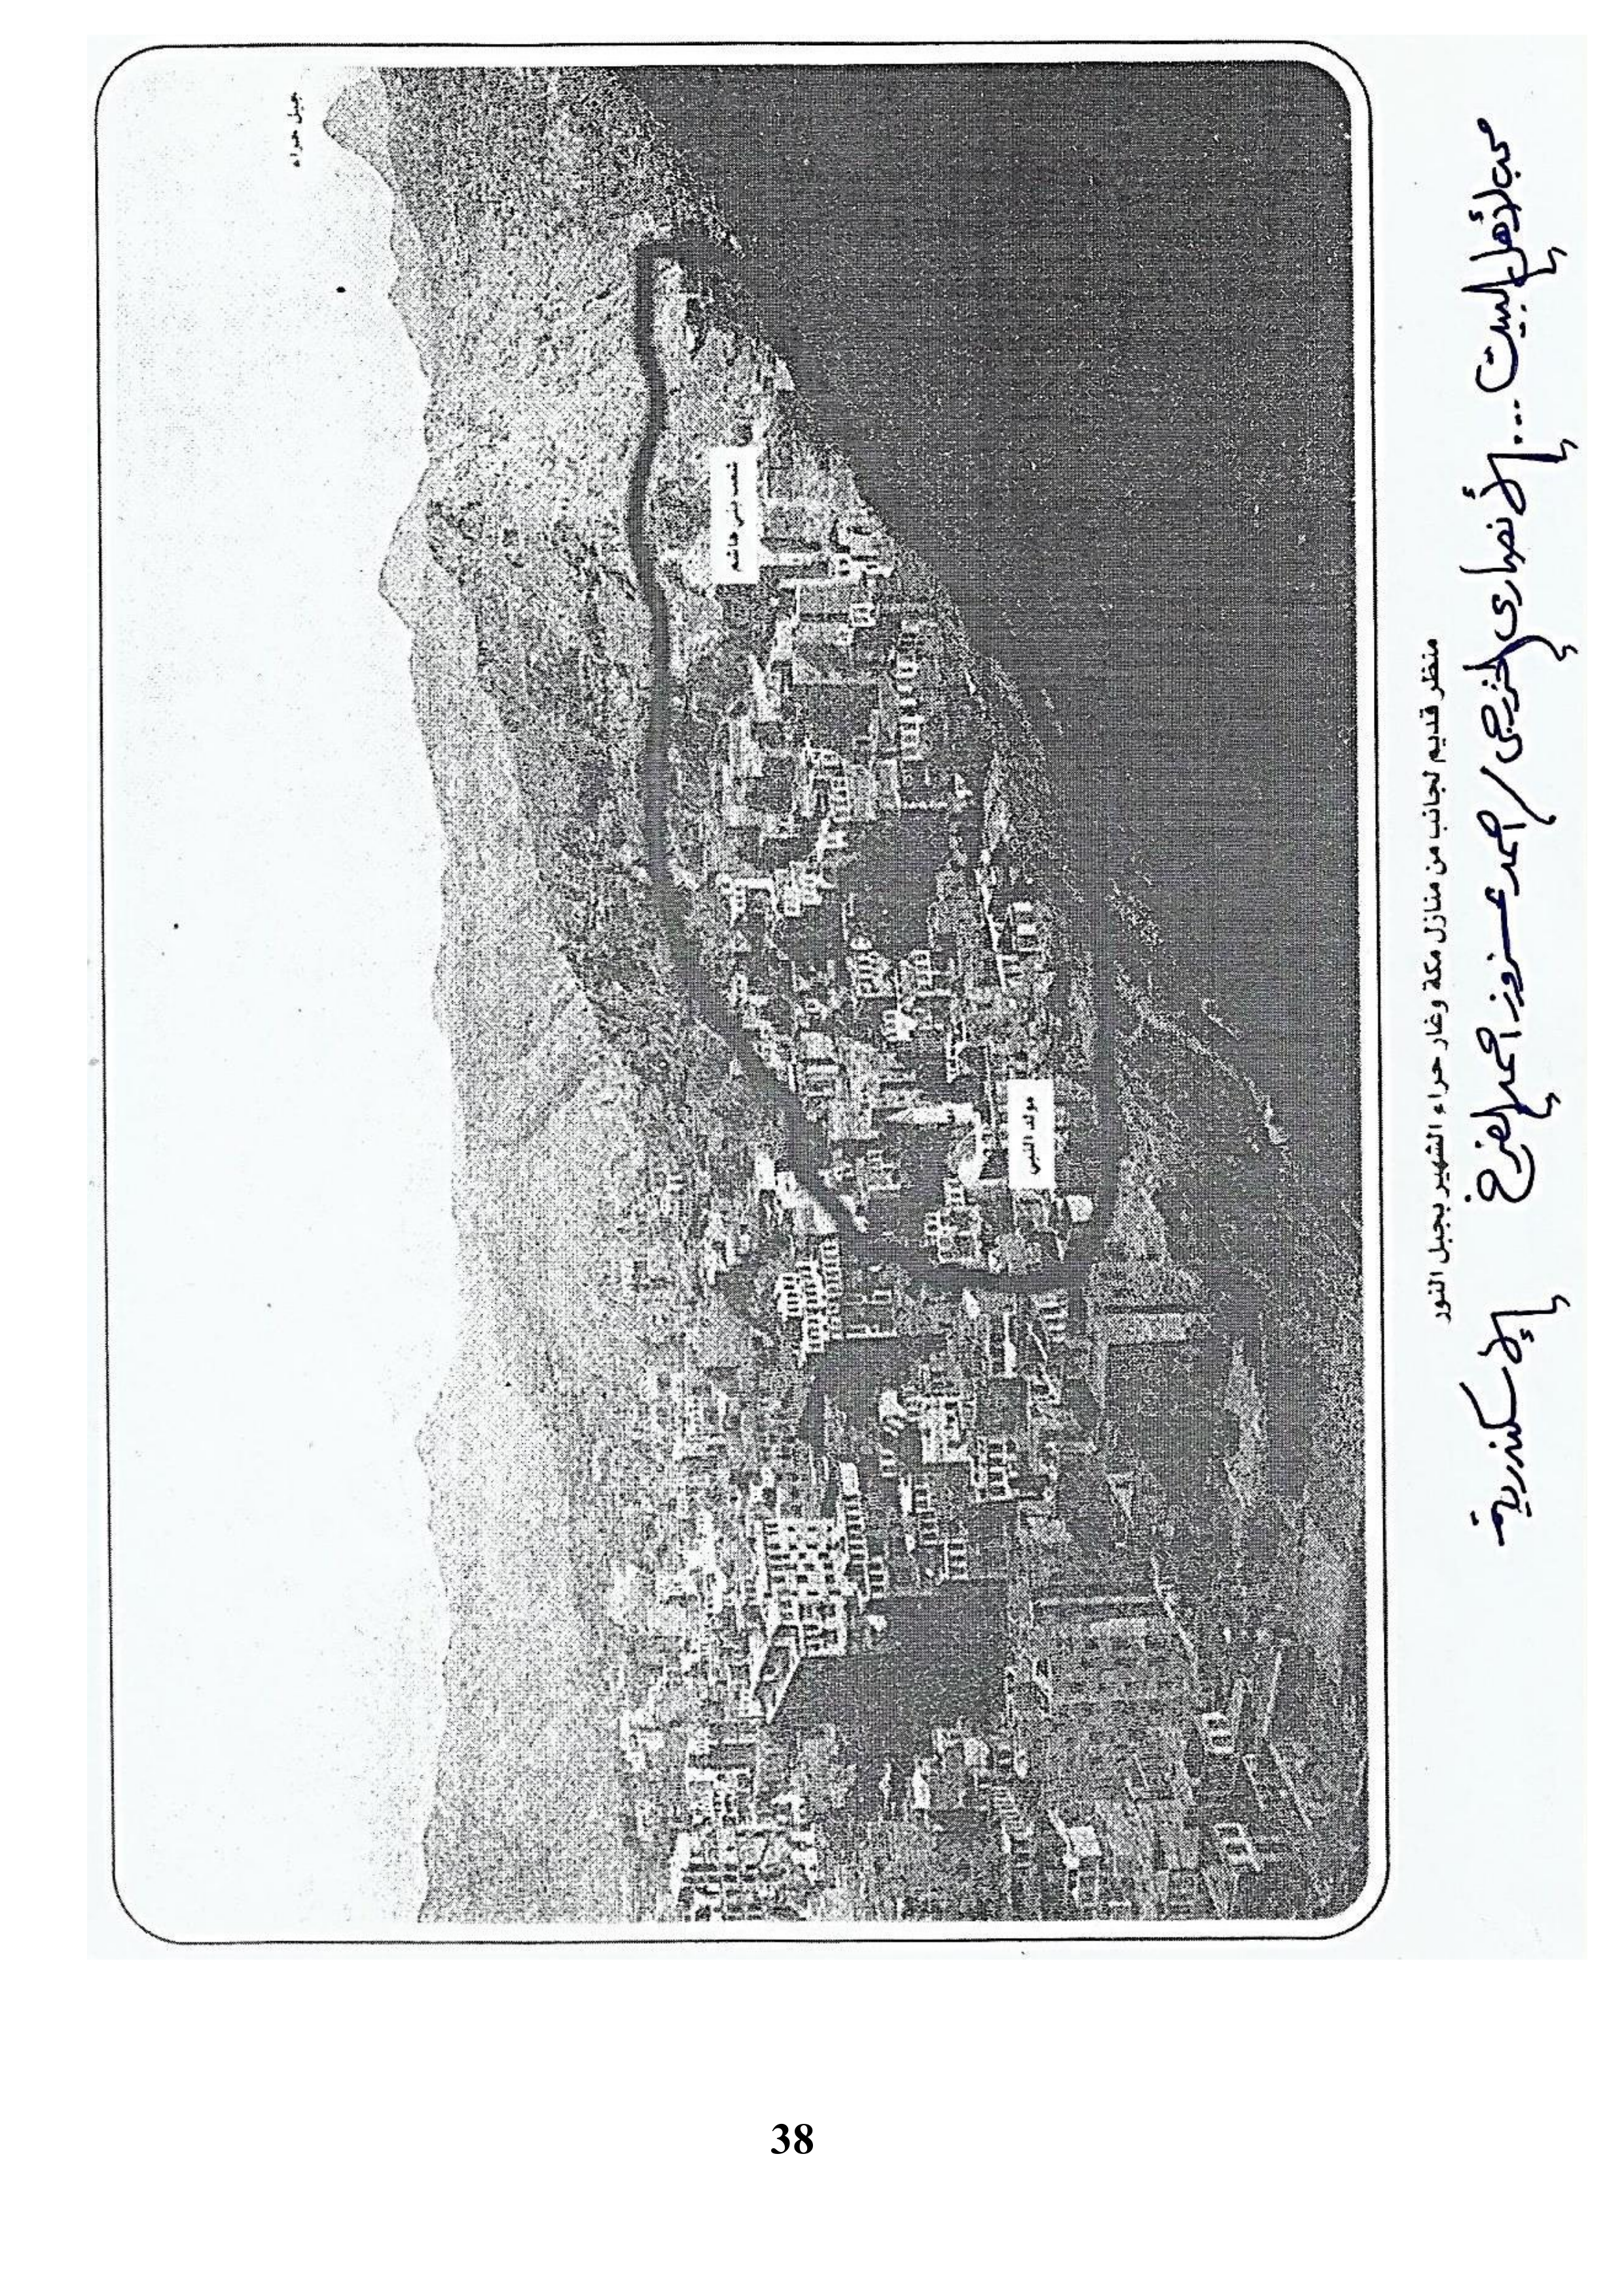 جبل حراء
شعب بني هاشم
مولد النبي
منظر قديم لجانب من منازل مكة وغار حراء الشهير بجبل النور
محب لأهل البيت ... الأنصاري الخزرجي / احمد عزوز احمد الفرخ
الإسكندرية
38